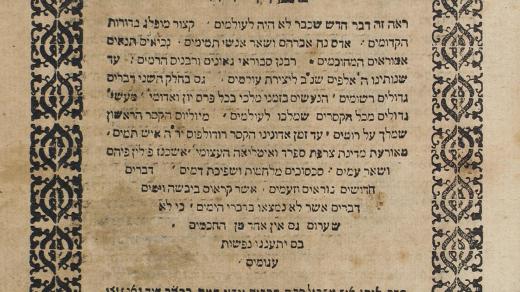 ראה זה דבר חדש שכבר לא היה לעולמים ׳ קצור מופלג בדורות
הקדומים ׳ אדם נח אברהם ושאר אנשי תמימים ׳ נביאים תנאים
אמוראים המחוכמים ׳ רבנן סבוראי גאונים ורבנים הרמים ׳ עד
שנותינו ה׳ אלפים שנ״ב ליצירת עולמים ׳ גם בחלק השני דברים
גדולים רשומים ׳ הנעשים בזמני מלכי בבל פרס יון ואדומי ׳ מעשי׳
גדולים מכל הקסרים שמלכו לעולמים ׳ מיוליוס הקסר הראשון
שמלך על רומיים ׳ עד זמן אדונינו הקסר רודולפוס יר״ה איש תמים ׳
מאורעת מדינת צרפת ספרד ואיטליאה העצומי׳ אשכנז פולין פיהם
ושאר עמים ׳ סכסוכים מלחמות ושפיכת דמים ׳ דברים
חדושים נוראים וזעמים ׳ אשר קראום ביבשה וימים
דברים אשר לא נמצאו בדברי הימים ׳ כי לא
שערום גם אין אחד מן החכמים ׳
בם יתענגו נפשות
ענומים ׳